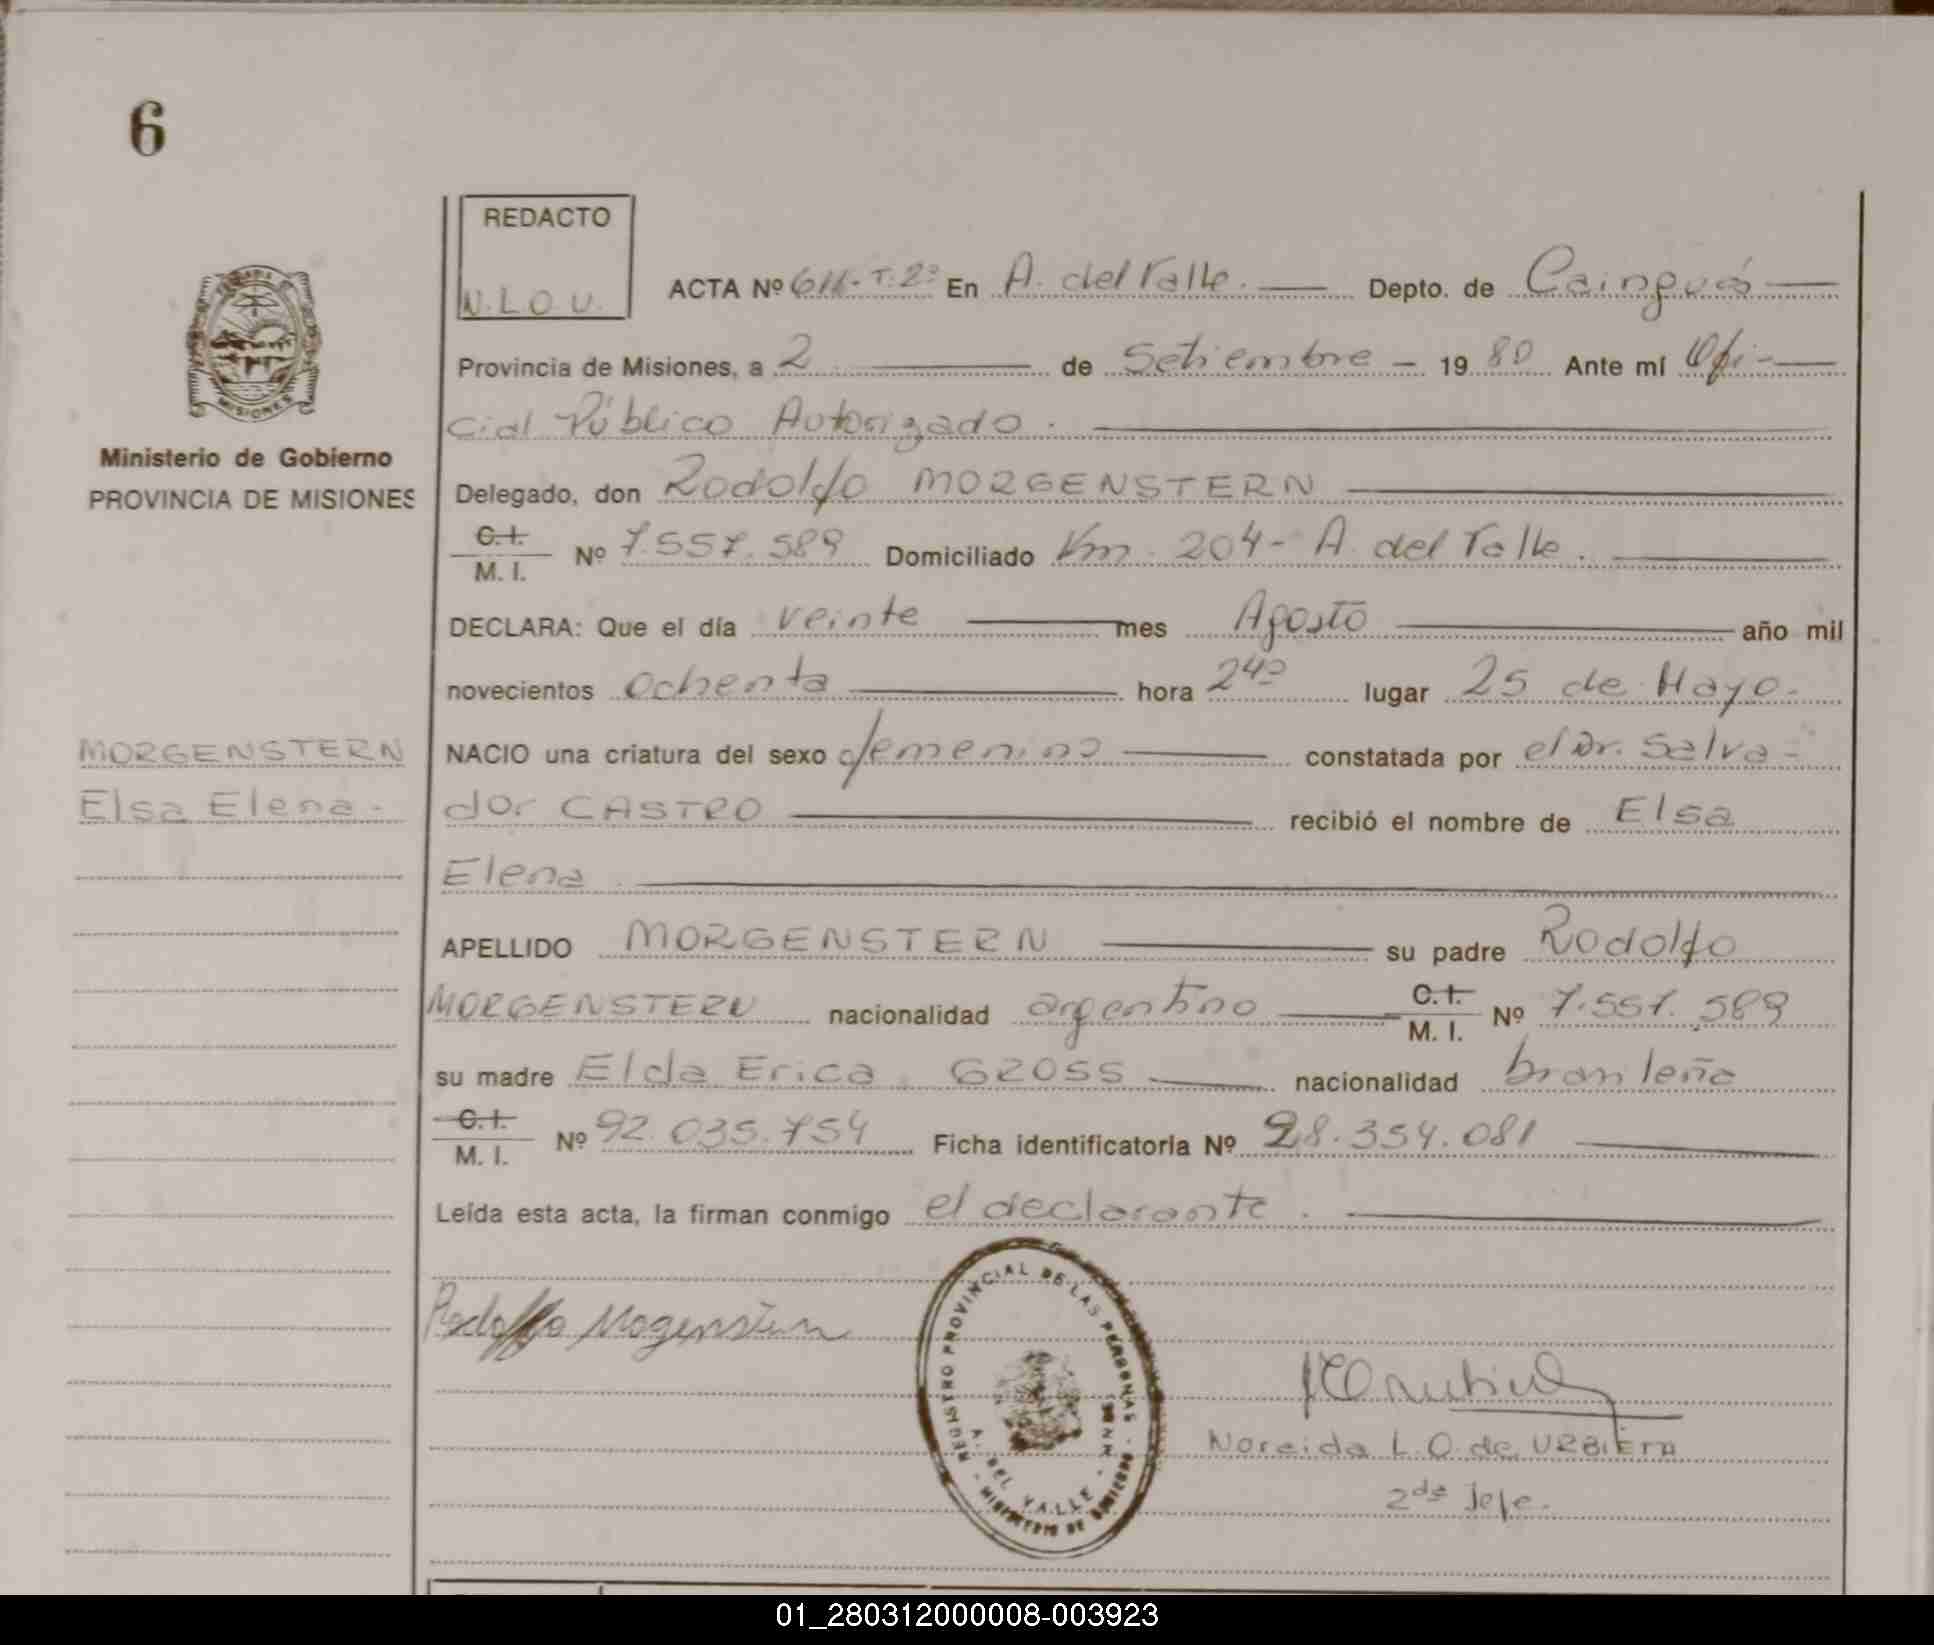 6
REDACTO
N.L.O.U.
ACTA Nº 611-T.2º En A. del Valle. Depto. de Cainguás
Provincia de Misiones, a 2 de Setiembre - 1980 Ante mí Ofi-
cial Público Autorizado.
Ministerio de Gobierno
PROVINCIA DE MISIONES
Delegado, don Rodolfo MORGENSTERN
C.I.
M. I. Nº 7.557.589 Domiciliado Km. 204 - A. del Valle.
DECLARA: Que el día veinte mes Agosto año mil
novecientos ochenta hora 24º lugar 25 de Mayo.
MORGENSTERN
Elsa Elena.
NACIO una criatura del sexo femenino constatada por el Dr. Salva-
dor CASTRO recibió el nombre de Elsa
Elena
APELLIDO MORGENSTERN su padre Rodolfo
MORGENSTERN nacionalidad argentino C.I.
M. I. Nº 7.557.589
su madre Elda Erica GROSS nacionalidad brasileña
C.I.
M. I. Nº 92.035.754 Ficha identificatoria Nº 28.354.081
Leída esta acta, la firman conmigo el declarante.
Rodolfo Mogenstern
REGISTRO PROVINCIAL DE LAS PERSONAS
A. DEL VALLE
MINISTERIO DE GOBIERNO
Noreida L. O. de URBIETA
2da Jefe.
01_280312000008-003923